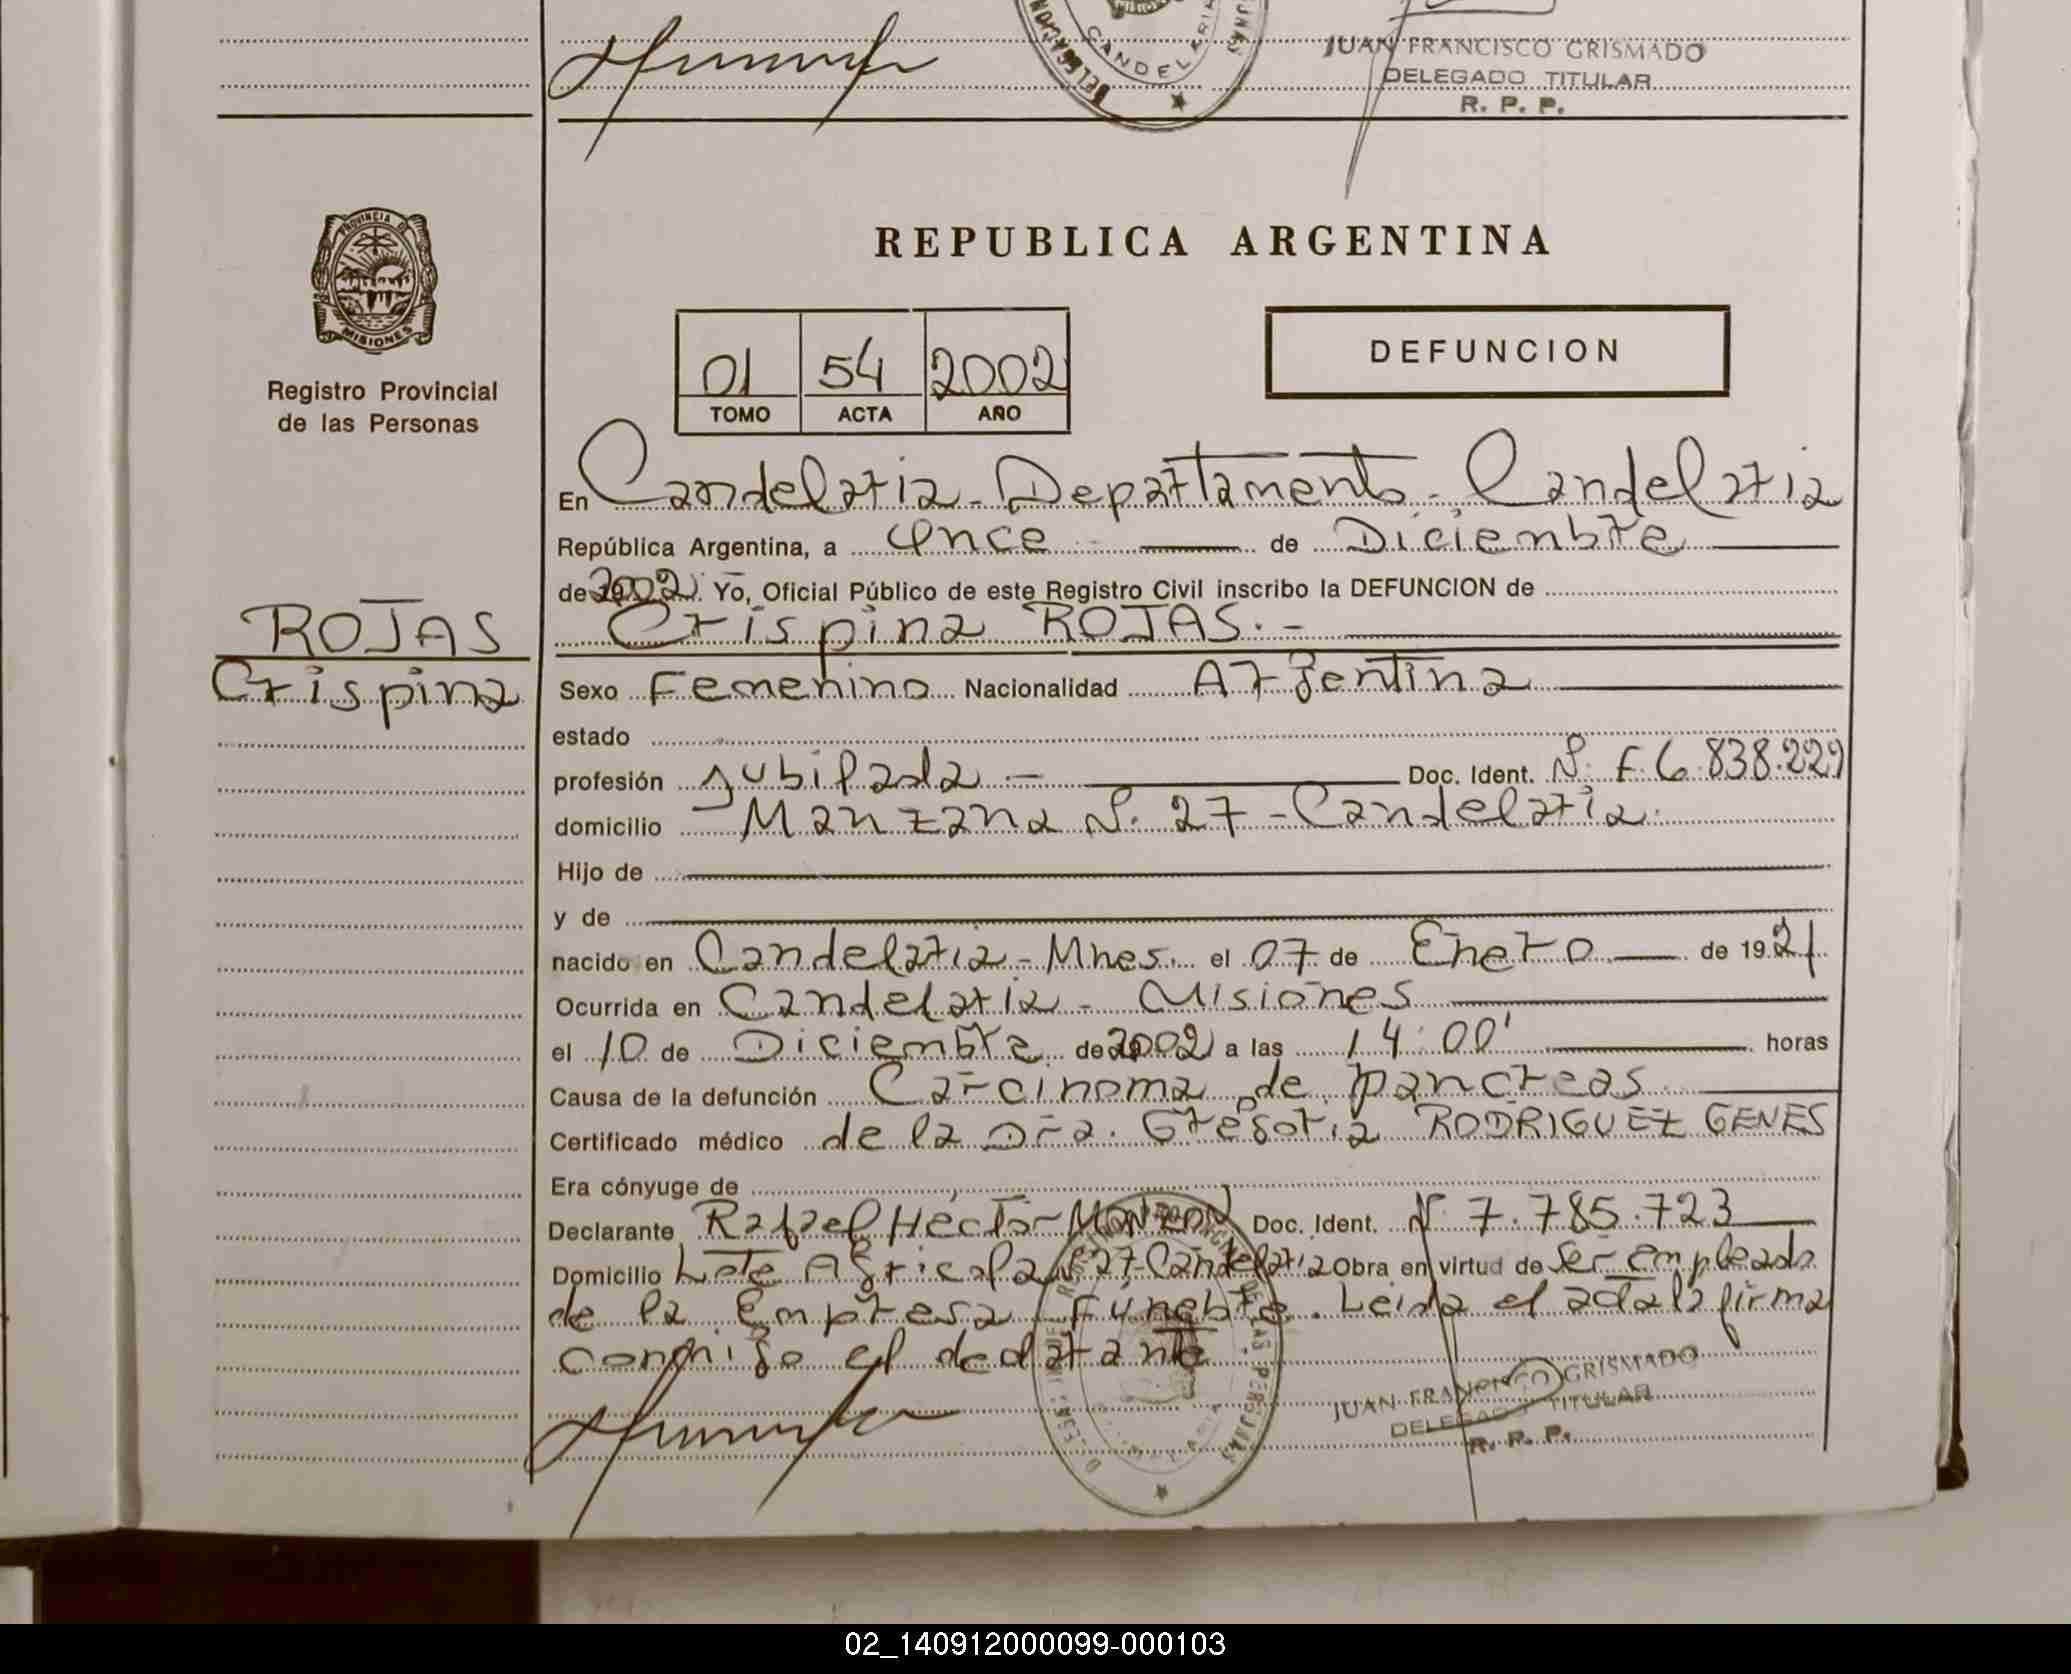 CANDELARIA
JUAN FRANCISCO GRISMADO
DELEGADO TITULAR
R. P. P.
PROVINCIA DE
MISIONES
Registro Provincial
de las Personas
REPUBLICA ARGENTINA
01 54 2002
TOMO ACTA AÑO
DEFUNCION
En Candelaria - Departamento - Candelaria
República Argentina, a Once de Diciembre
de 2002. Yo, Oficial Público de este Registro Civil inscribo la DEFUNCION de
ROJAS
Crispina
Crispina ROJAS. -
Sexo Femenino Nacionalidad Argentina
estado
profesión Jubilada. - Doc. Ident. Nº F. 6.838.229
domicilio Manzana Nº. 27 - Candelaria.
Hijo de
y de
nacido en Candelaria - Mnes. el 07 de Enero de 1921
Ocurrida en Candelaria - Misiones
el 10 de Diciembre de 2002 a las 14:00' horas
Causa de la defunción Carcinoma de pancreas
Certificado médico de la Dra. Gregoria RODRIGUEZ GENES
Era cónyuge de
Declarante Rafael Hector MONZON Doc. Ident. Nº 7.785.723
Domicilio Lote Agricola Nº 27 - Candelaria Obra en virtud de ser empleado
de la Empresa Fúnebre. Leida el acta la firma
conmigo el declarante
JUAN FRANCISCO GRISMADO
DELEGADO TITULAR
R. P. P.
02_140912000099-000103